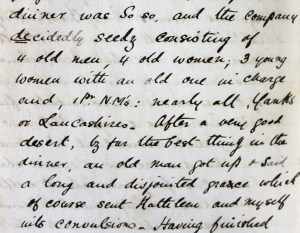 dinner was So so, and the company
decidedly seedy consisting of
4 old men, 4 old women; 3 young
women with an old one in charge
and, nearly all Yanks
or Lancashires. After a very good
desert, by far the best thing in the
dinner, an old man got up & said
a long and disjointed grace which
of course sent Kathleen and myself
into convulsions. Having finished